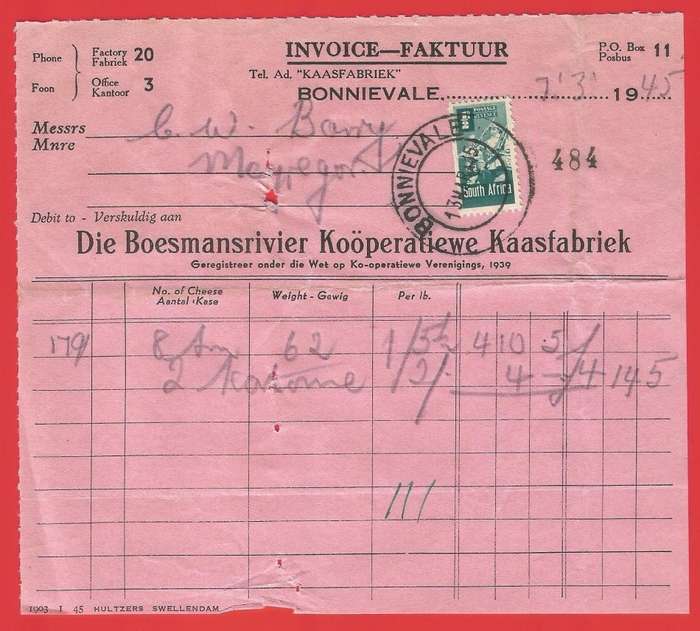 Phone Factory Fabriek 20
Foon Office Kantoor 3
INVOICE—FAKTUUR
P.O. Box Posbus 11
Tel. Ad. "KAASFABRIEK"
BONNIEVALE 7/3/ 1945
Messrs Mnre C. W. Barry
Macgregor.
BONNIEVALE
POSTAGE REVENUE
South Africa
484
Debit to - Verskuldig aan
Die Boesmansrivier Koöperatiewe Kaasfabriek
Geregistreer onder die Wet op Ko-operatiewe Verenigings, 1939
No. of Cheese Aantal Kase Weight - Gewig Per lb.
179 8 62 1/5½ 4 10 5
2 1/2/. 4 - 4 14 5
111
1903 I 45 HULTZERS SWELLENDAM